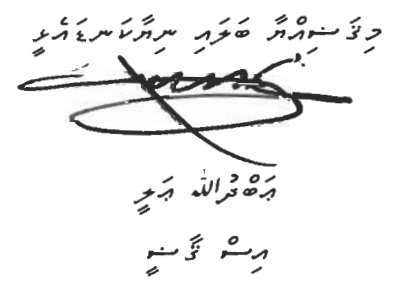 މިޤަޟިއްޔާ ބަލައި ނިޔާކަނޑައެޅީ
ޢަބްދުﷲ ޢަލީ
އިސް ޤާޟީ